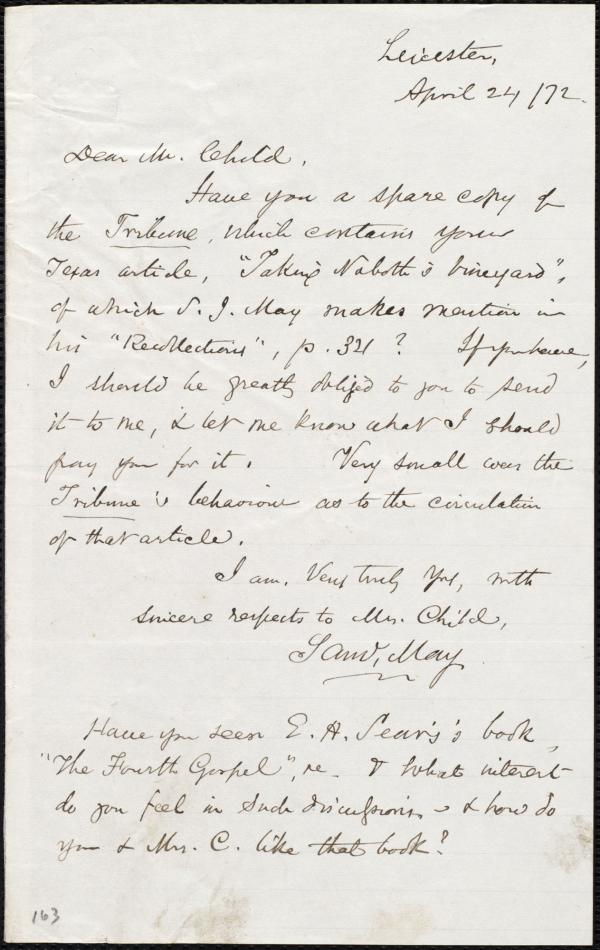 Leicester,
April 24/72.
Dear Mr. Child,
Have you a spare copy of
the Tribune, which contains your
Texas article, "Taking Naboth's Vineyard",
of which S. J. May makes mention in
his "Recollections", p. 321? If you have,
I should be greatly obliged to you to send
it to me, & let me know what I should
pay you for it. Very small was the
Tribune's behaviour as to the circulation
of that article.
I am, Very truly Yrs, with
sincere respects to Mrs. Child,
Saml. May.
Have you seen E. H. Sears's book,
"The Fourth Gospel", &c. & What interest
do you feel in such discussions - & how do
you & Mrs. C. like that book?
163